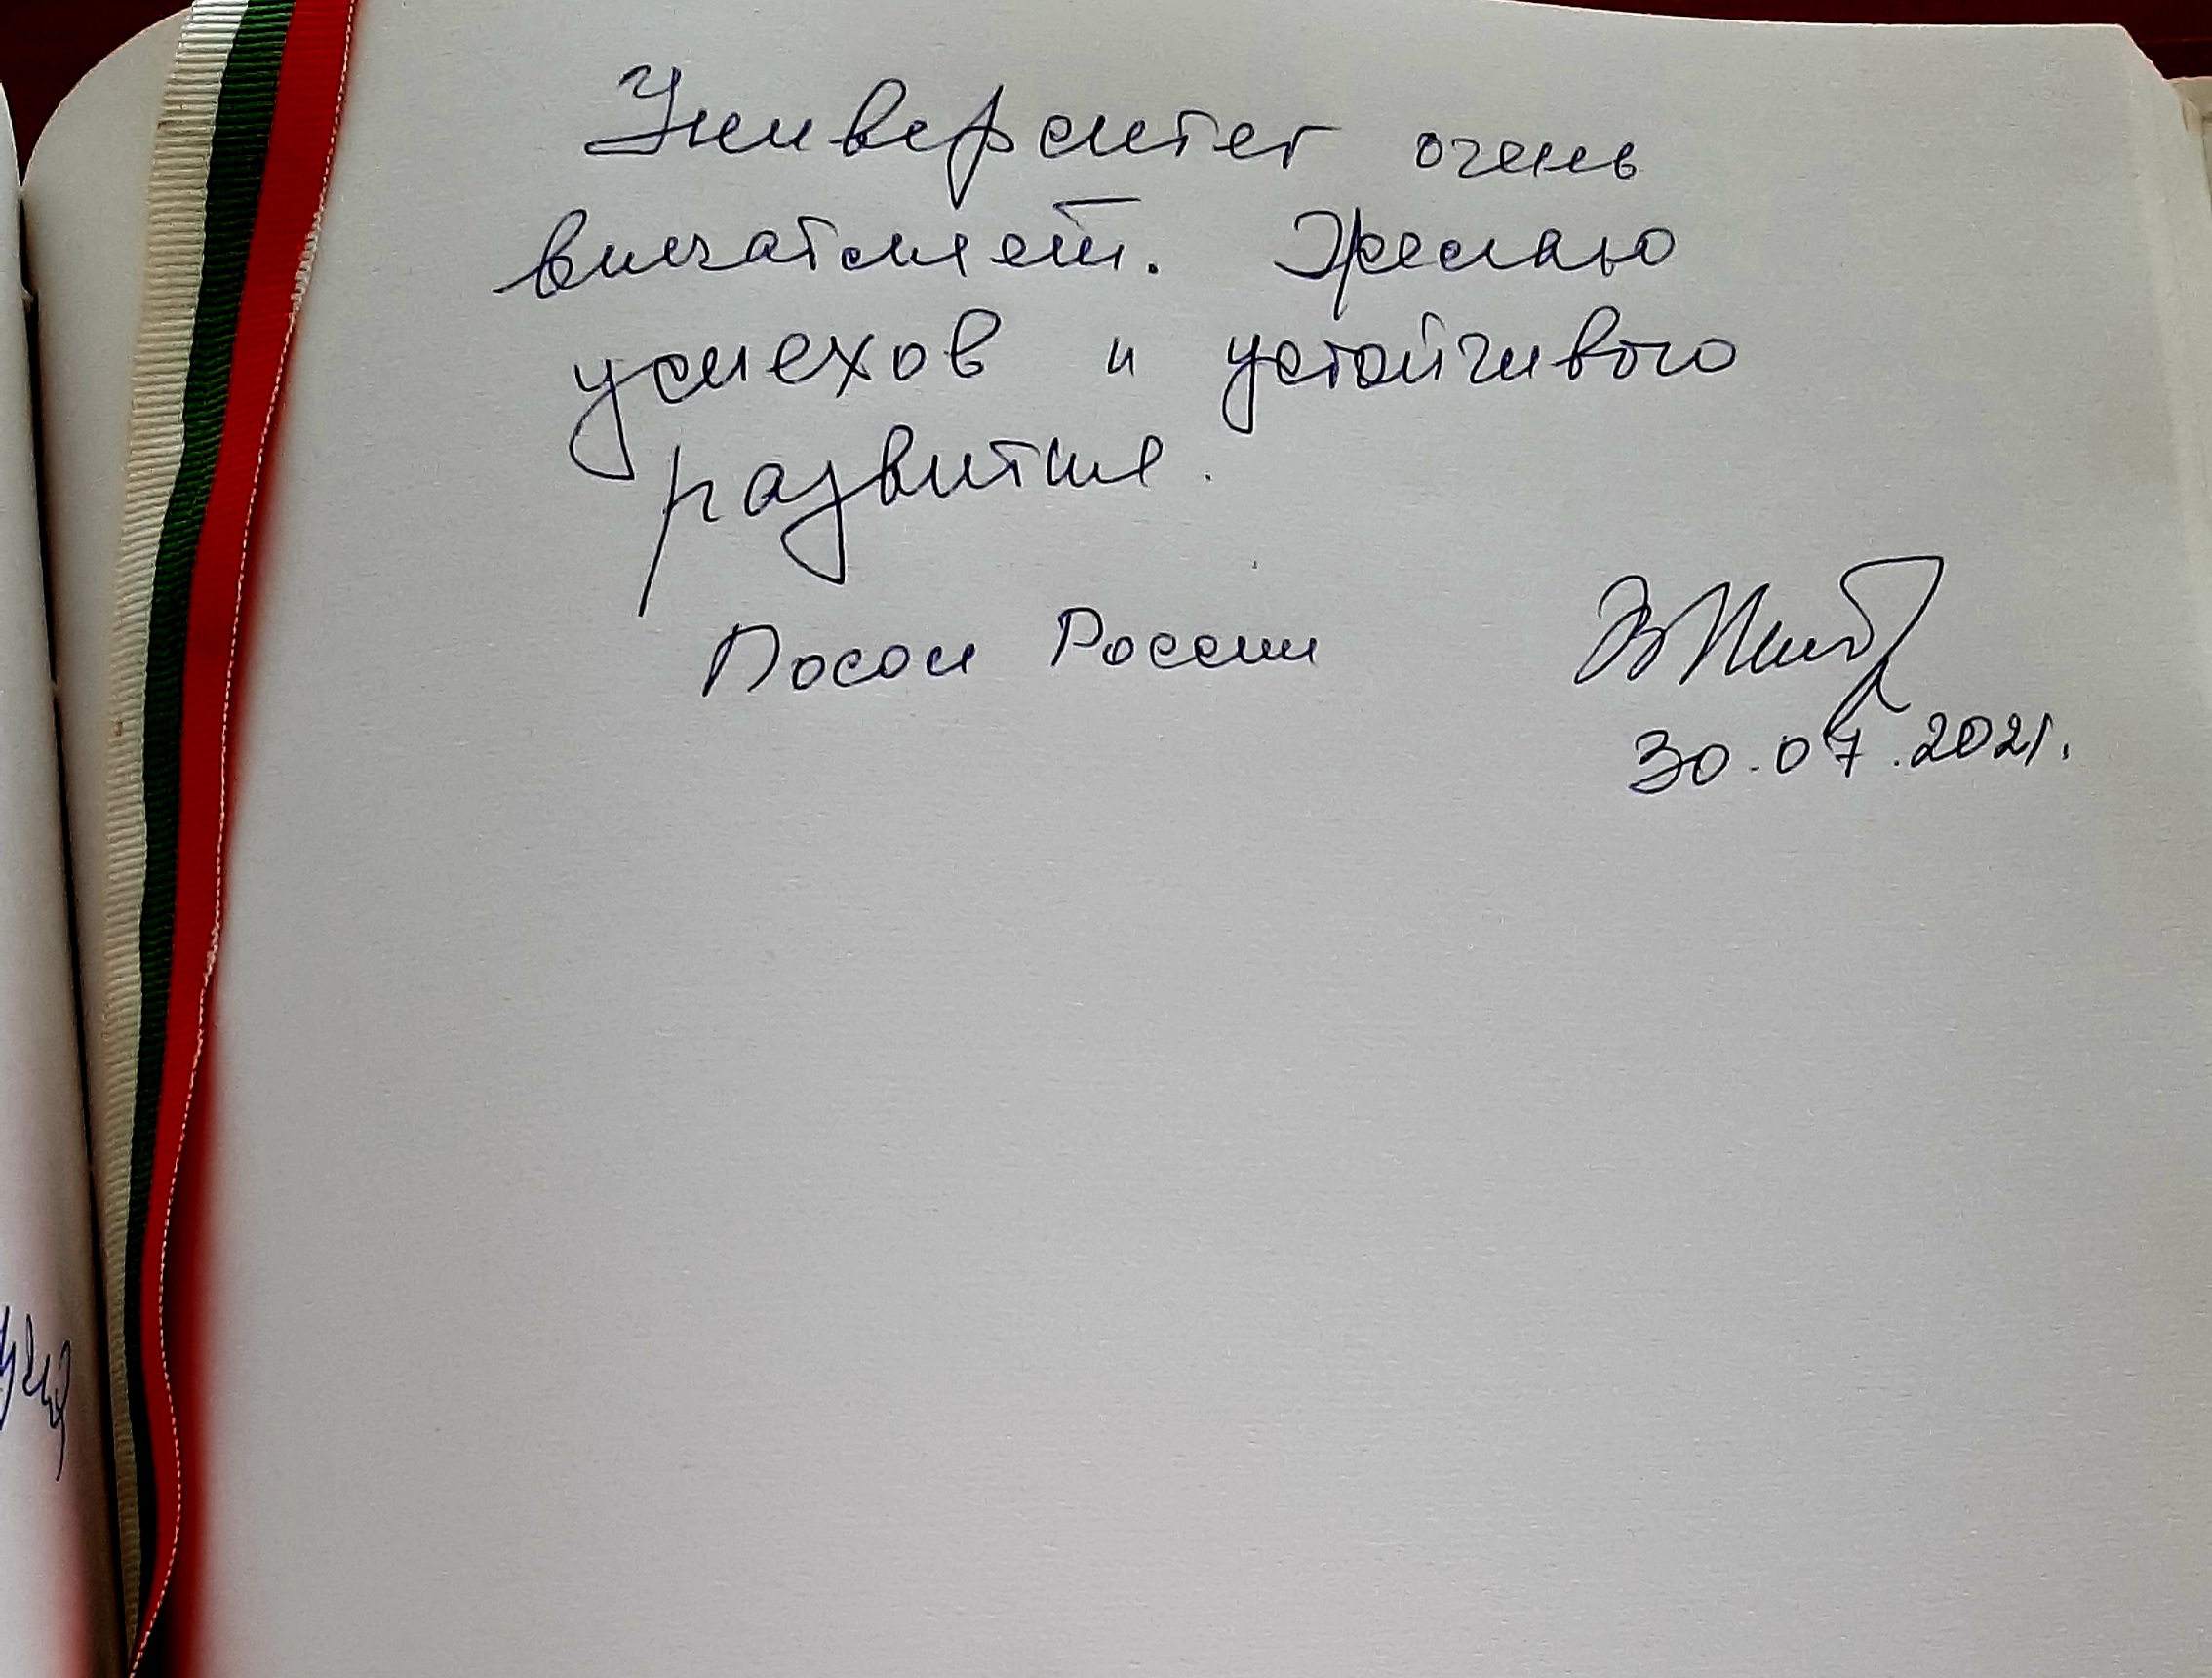 Университет очень
впечатляет. Желаю
успехов и устойчивого
развития.
Посол России
30.07.2021.